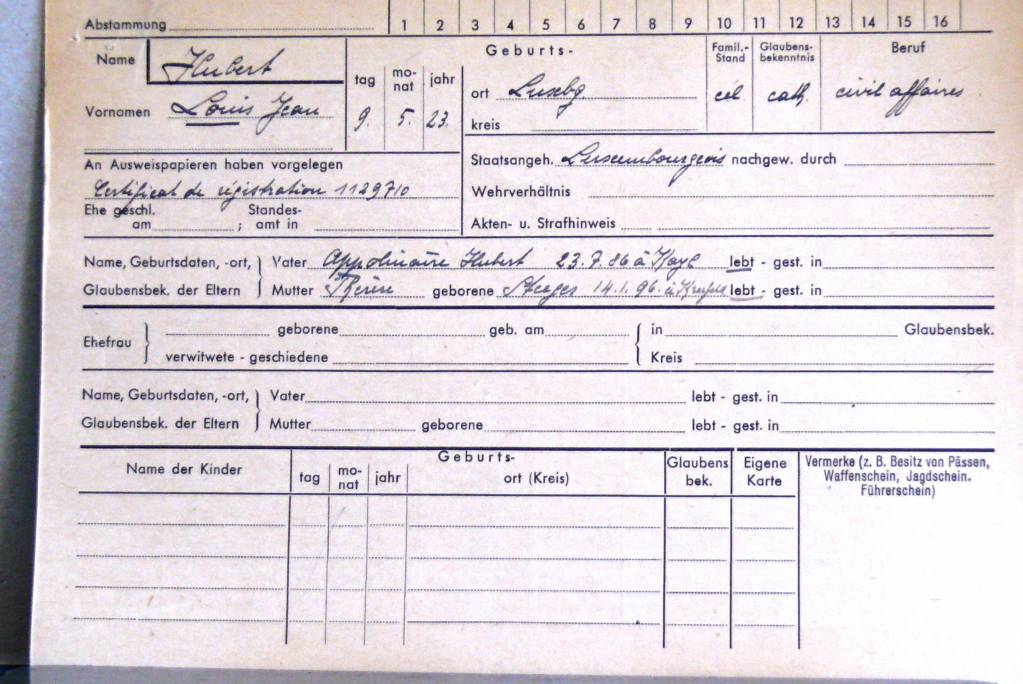 Abstammung 1 2 3 4 5 6 7 8 9 10 11 12 13 14 15 16
Name Hubert
Vornamen Louis Jean
Geburts-
tag mo-nat jahr
9. 5. 23.
ort Luxbg
kreis
Famil.-Stand
cel
Glaubens-bekenntnis
cath.
Beruf
civil affaires
An Ausweispapieren haben vorgelegen
Certificat de régistration 1129710
Ehe geschl. am ; Standes-amt in
Staatsangeh. Luxembourgeois nachgew. durch
Wehrverhältnis
Akten- u. Strafhinweis
Name, Geburtsdaten, -ort, Vater Appolinaire Hubert 23.7.86 à Kayl lebt - gest. in
Glaubensbek. der Eltern Mutter geborene Steges 14.1.96. à Krefeld lebt - gest. in
Ehefrau geborene geb. am in Glaubensbek.
verwitwete - geschiedene Kreis
Name, Geburtsdaten, -ort, Vater lebt - gest. in
Glaubensbek. der Eltern Mutter geborene lebt - gest. in
Name der Kinder
Geburts-
tag mo-nat jahr ort (Kreis)
Glaubens bek.
Eigene Karte
Vermerke (z. B. Besitz von Pässen,
Waffenschein, Jagdschein.
Führerschein)